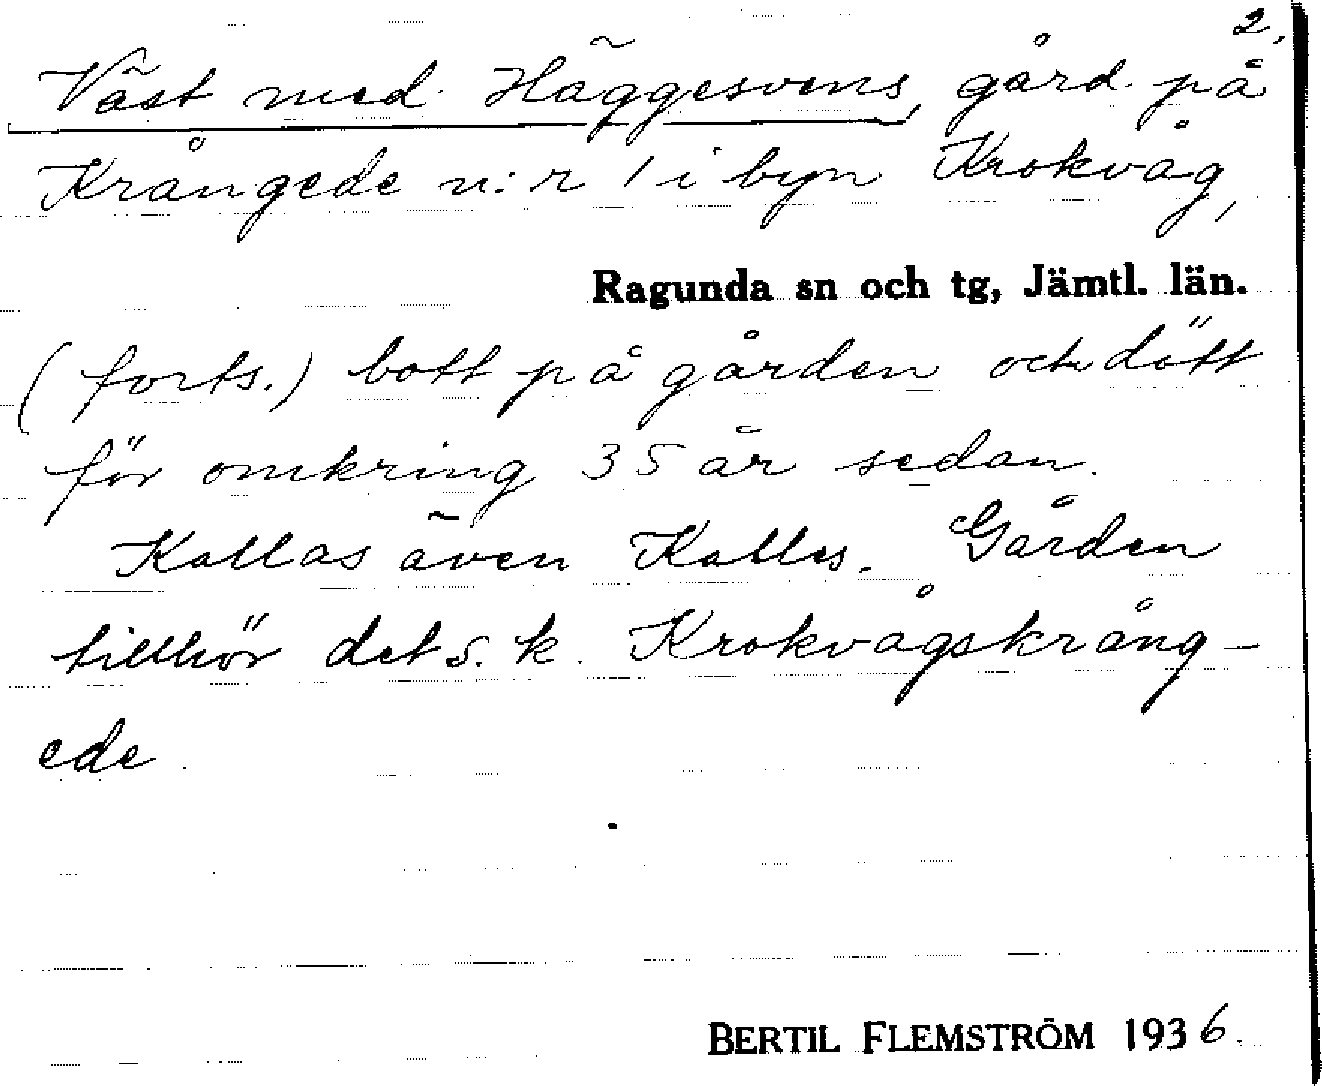 2.
Väst med Häggesvens, gård på
Krångede n:r 1 i byn Krokvåg,
Ragunda sn och tg, Jämtl. län.
(forts.) bott på gården och dött
för omkring 35 år sedan.
Kallas även Kalles. Gården
tillhör det s.k. Krokvågskrång-
ede.
BERTIL FLEMSTRÖM 1936.